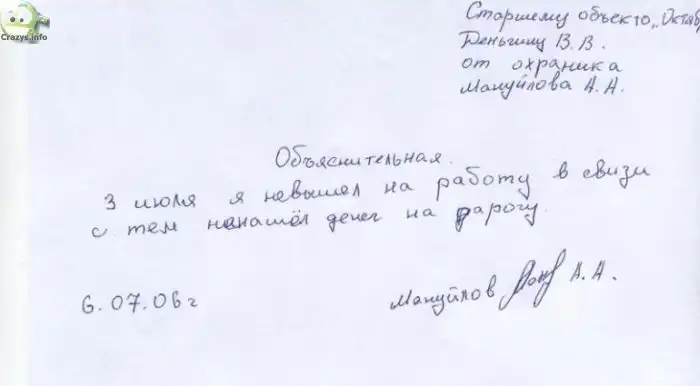 Crazys.info
Старшему объекто „Октяб
Деньгину В.В.
от охраника
Мануйлова А.А.
Объяснительная.
3 июля я невышел на работу в свизи
с тем ненашёл денег на дарогу.
6.07.06г
Мануйлов А.А.